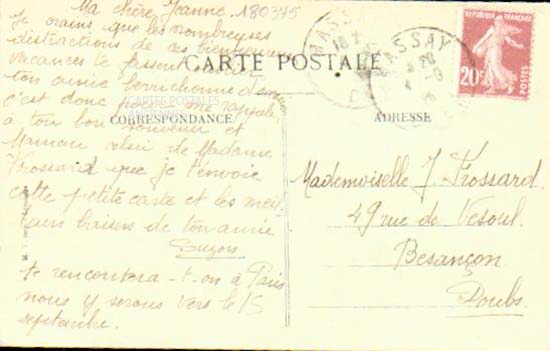 Ma chère Jeanne, 180375
Je crains que les nombreuses
distractions de ces bienheureuses
vacances te fassent oublier
ton amie berrichonne
c'est donc pour me rappeler
à ton bon souvenir et
Maman celui de Madame
Frossard que je t'envoie
cette petite carte et les meil
leurs baisers de ton amie
Suzon
te rencontrera-t-on à Paris
nous y serons vers le 15
septembre.
CARTE POSTALE
CARTES POSTALES
CORRESPONDANCE
ADRESSE
MASSAY
MASSAY
REPUBLIQUE FRANÇAISE
20c
POSTES
Mademoiselle J. Frossard
49 rue de Vesoul
Besançon
Doubs